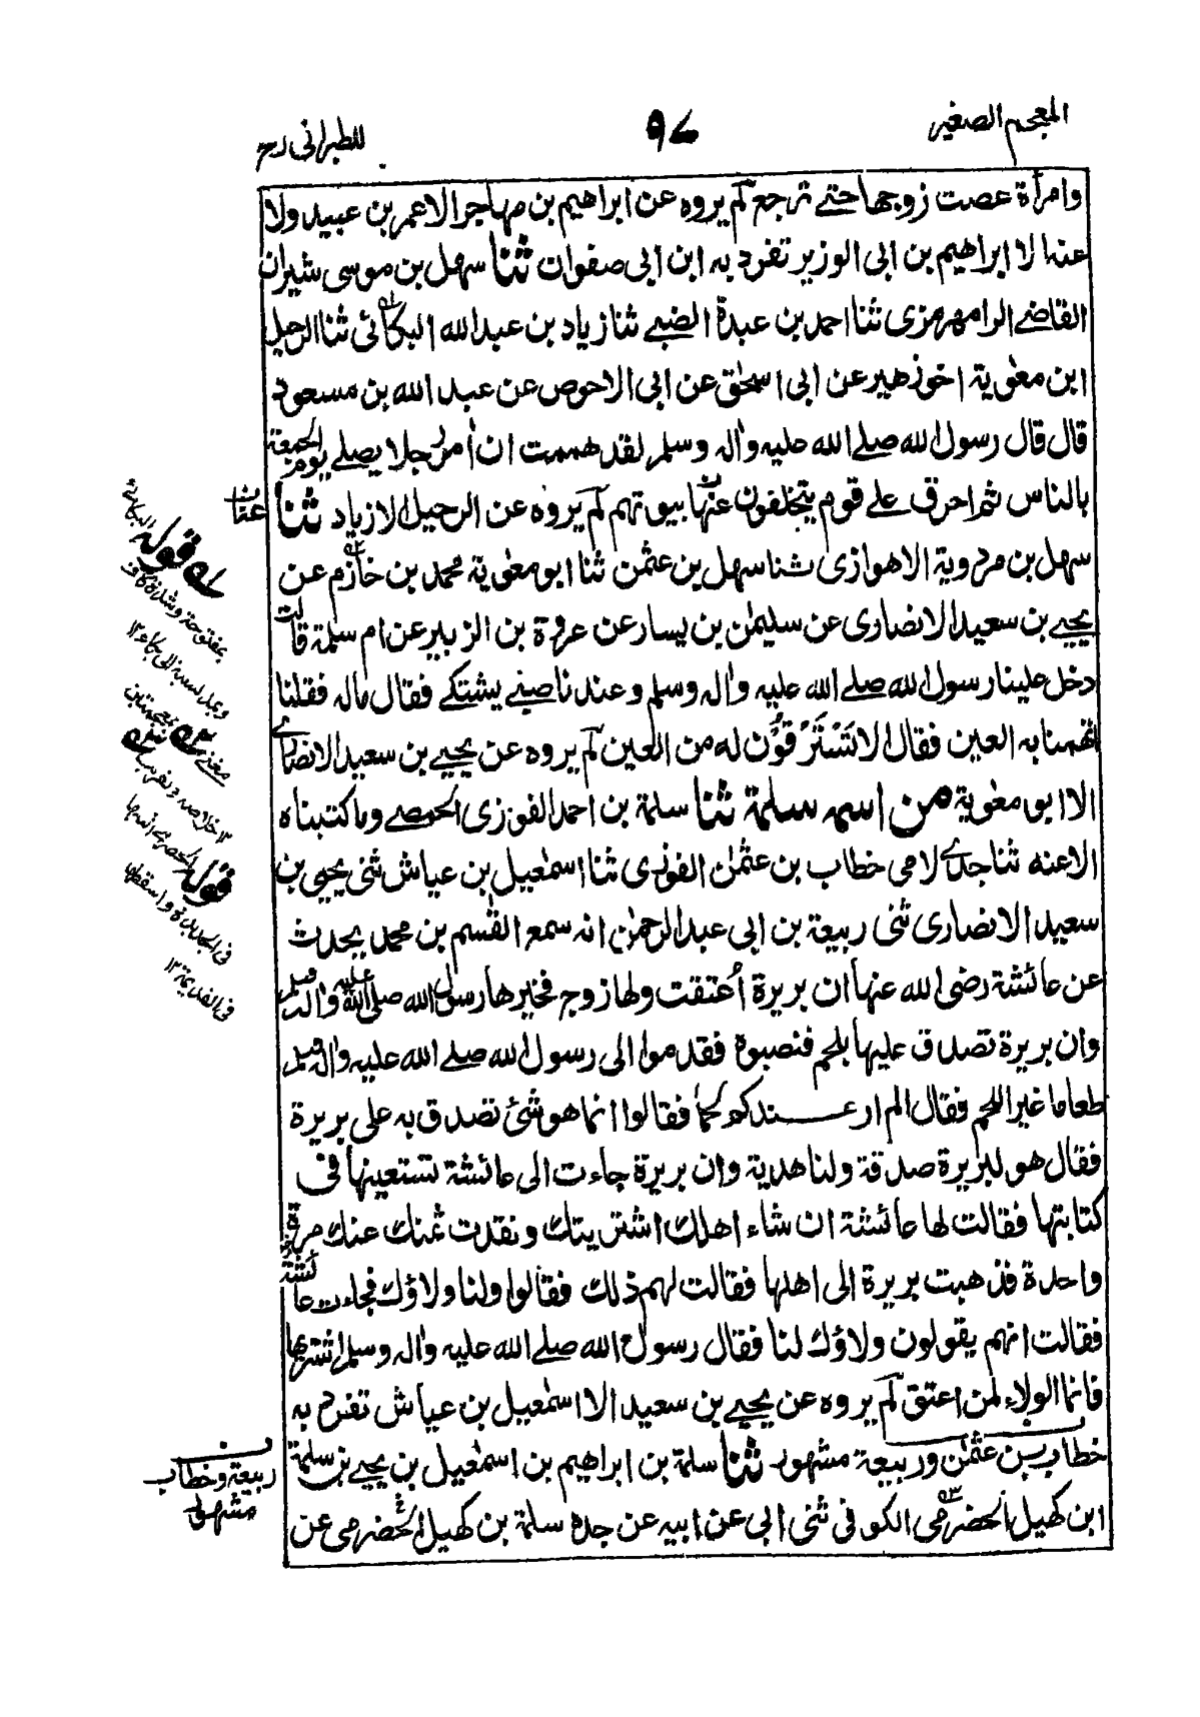 المعجم الصغير
٩٨
للطبرانى رح
وامرأة عصت زوجها حتے ترجع لم يروه عن ابراهيم بن مهاجر الا عمر بن عبيد ولا
عنه الا ابراهيم بن ابى الوزير تفرد به ابن ابى صفوان ثنا سهل بن موسى شيران
القاضے الرامهرمزى ثنا احمد بن عبدة الضبے ثنا زياد بن عبد الله البكائى ثنا الرحيل
ابن معٰوية اخو زهير عن ابى اسحٰق عن ابى الاحوص عن عبد الله بن مسعود
قال قال رسول الله صلے الله عليه واٰله وسلم لقد هممت ان اٰمر رجلا يصلے يوم الجمعة
بالناس ثم احرق علے قوم يتخلفون عنها بيوتهم لم يروه عن الرحيل الا زياد ثنا
سهل بن مردوية الاهوازى ثنا سهل بن عثمٰن ثنا ابو معٰوية محمد بن خازم عن
يحيے بن سعيد الانصارى عن سليمٰن بن يسار عن عروة بن الزبير عن ام سلمة قالت
دخل علينا رسول الله صلے الله عليه واٰله وسلم وعندنا صبے يشتكے فقال ماله فقلنا
اتهمنا به العين فقال الا تَسْتَرْقُوْن له من العين لم يروه عن يحيے بن سعيد الانصارے
الا ابو معٰوية من اسمه سلمة ثنا سلمة بن احمد الفوزى الحمصے وما كتبناه
الا عنه ثنا جدے لامى خطاب بن عثمٰن الفوزى ثنا اسمٰعيل بن عياش ثنى يحيى بن
سعيد الانصارى ثنى ربيعة بن ابى عبد الرحمٰن انه سمع القٰسم بن محمد يحدث
عن عائشة رضى الله عنها ان بريرة اُعتقت ولها زوج فخيرها رسول الله صلى الله عليه واٰله وسلم
وان بريرة تصدق عليها بلحم فنصبوه فقدموا الى رسول الله صلے الله عليه واٰله وسلم
طعاما غير اللحم فقال الم ار عندكم لحما فقالوا انما هو شئ تصدق به على بريرة
فقال هو لبريرة صدقة ولنا هدية وان بريرة جاءت الى عائشة تستعينها فى
كتابتها فقالت لها عائشة ان شاء اهلك اشتريتك ونقدت ثمنك عنك مرة
واحدة فذهبت بريرة الى اهلها فقالت لهم ذلك فقالوا ولنا ولاؤك فجاءت عائشة
فقالت انهم يقولون ولاؤك لنا فقال رسول الله صلے الله عليه واٰله وسلم اشتريها
فانما الولاء لمن اعتق لم يروه عن يحيے بن سعيد الا اسمٰعيل بن عياش تفرد به
خطاب بن عثمٰن وربيعة مشهور ثنا سلمة بن ابراهيم بن اسمٰعيل بن يحيے بن سلمة
ابن كهيل الحضرمى الكوفى ثنى ابى عن ابيه عن جده سلمة بن كهيل الحضرمى عن
ربيعة وخطاب
مشهور